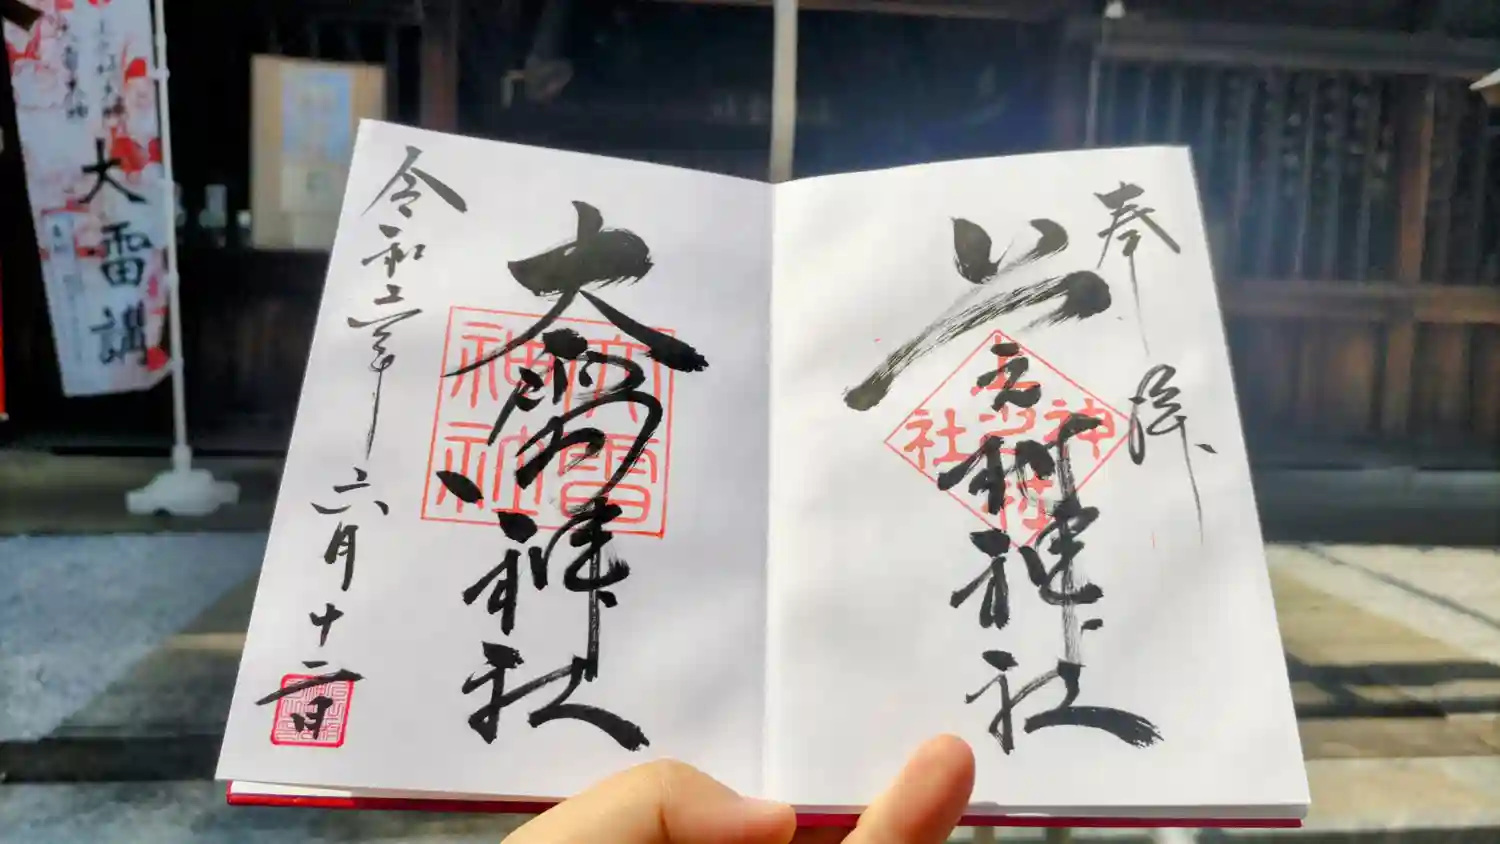 奉拝
上之村神社
上之村神社
大雷神社
大雷神社
令和二年六月十二日
大雷講